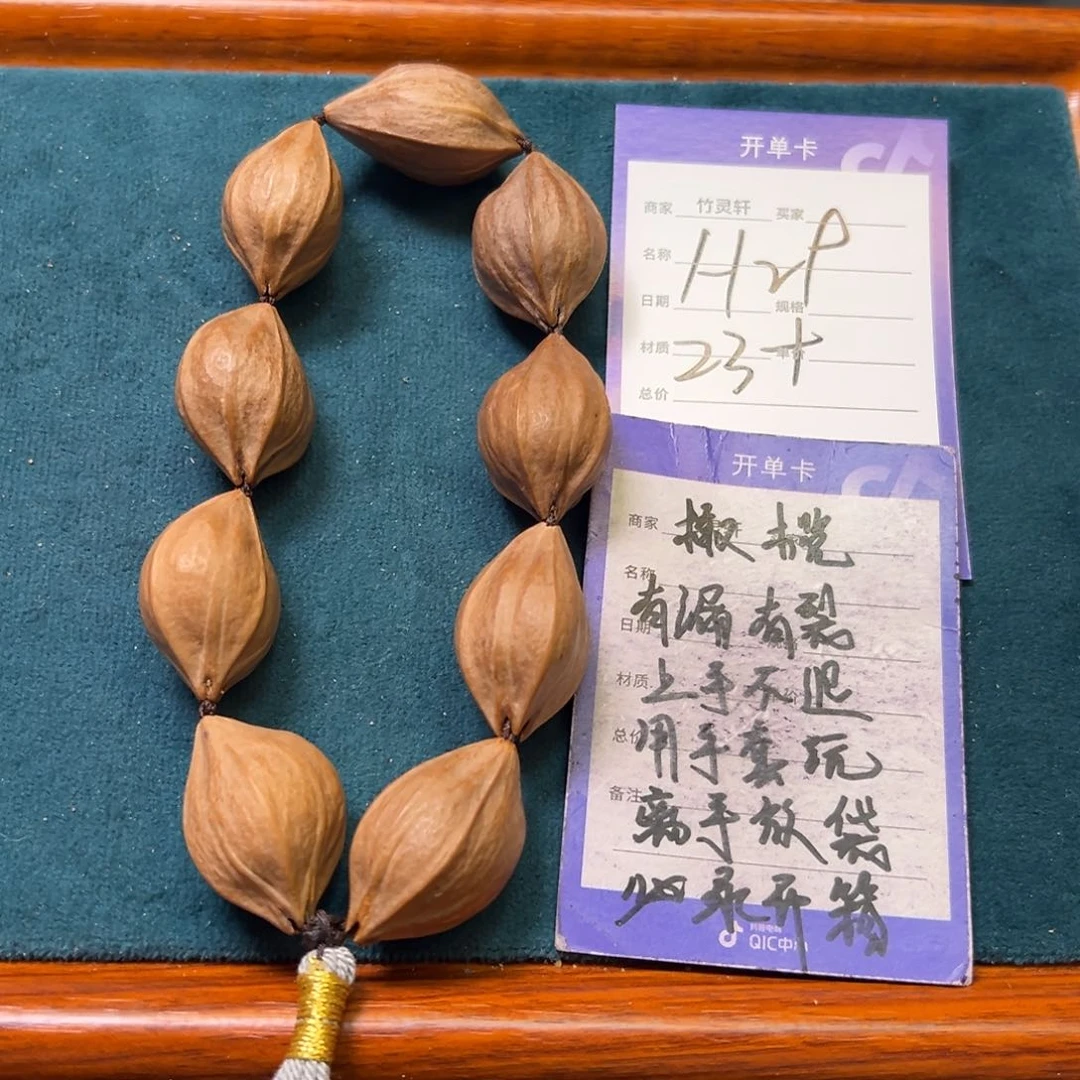 开单卡
商家 竹灵轩 买家
名称
H28
日期 规格
材质
23+
总价
开单卡
商家
橄榄
名称
有漏有裂
日期
材质
上手不退
总价
用手套玩
备注
离手放袋
必录开箱
QIC中